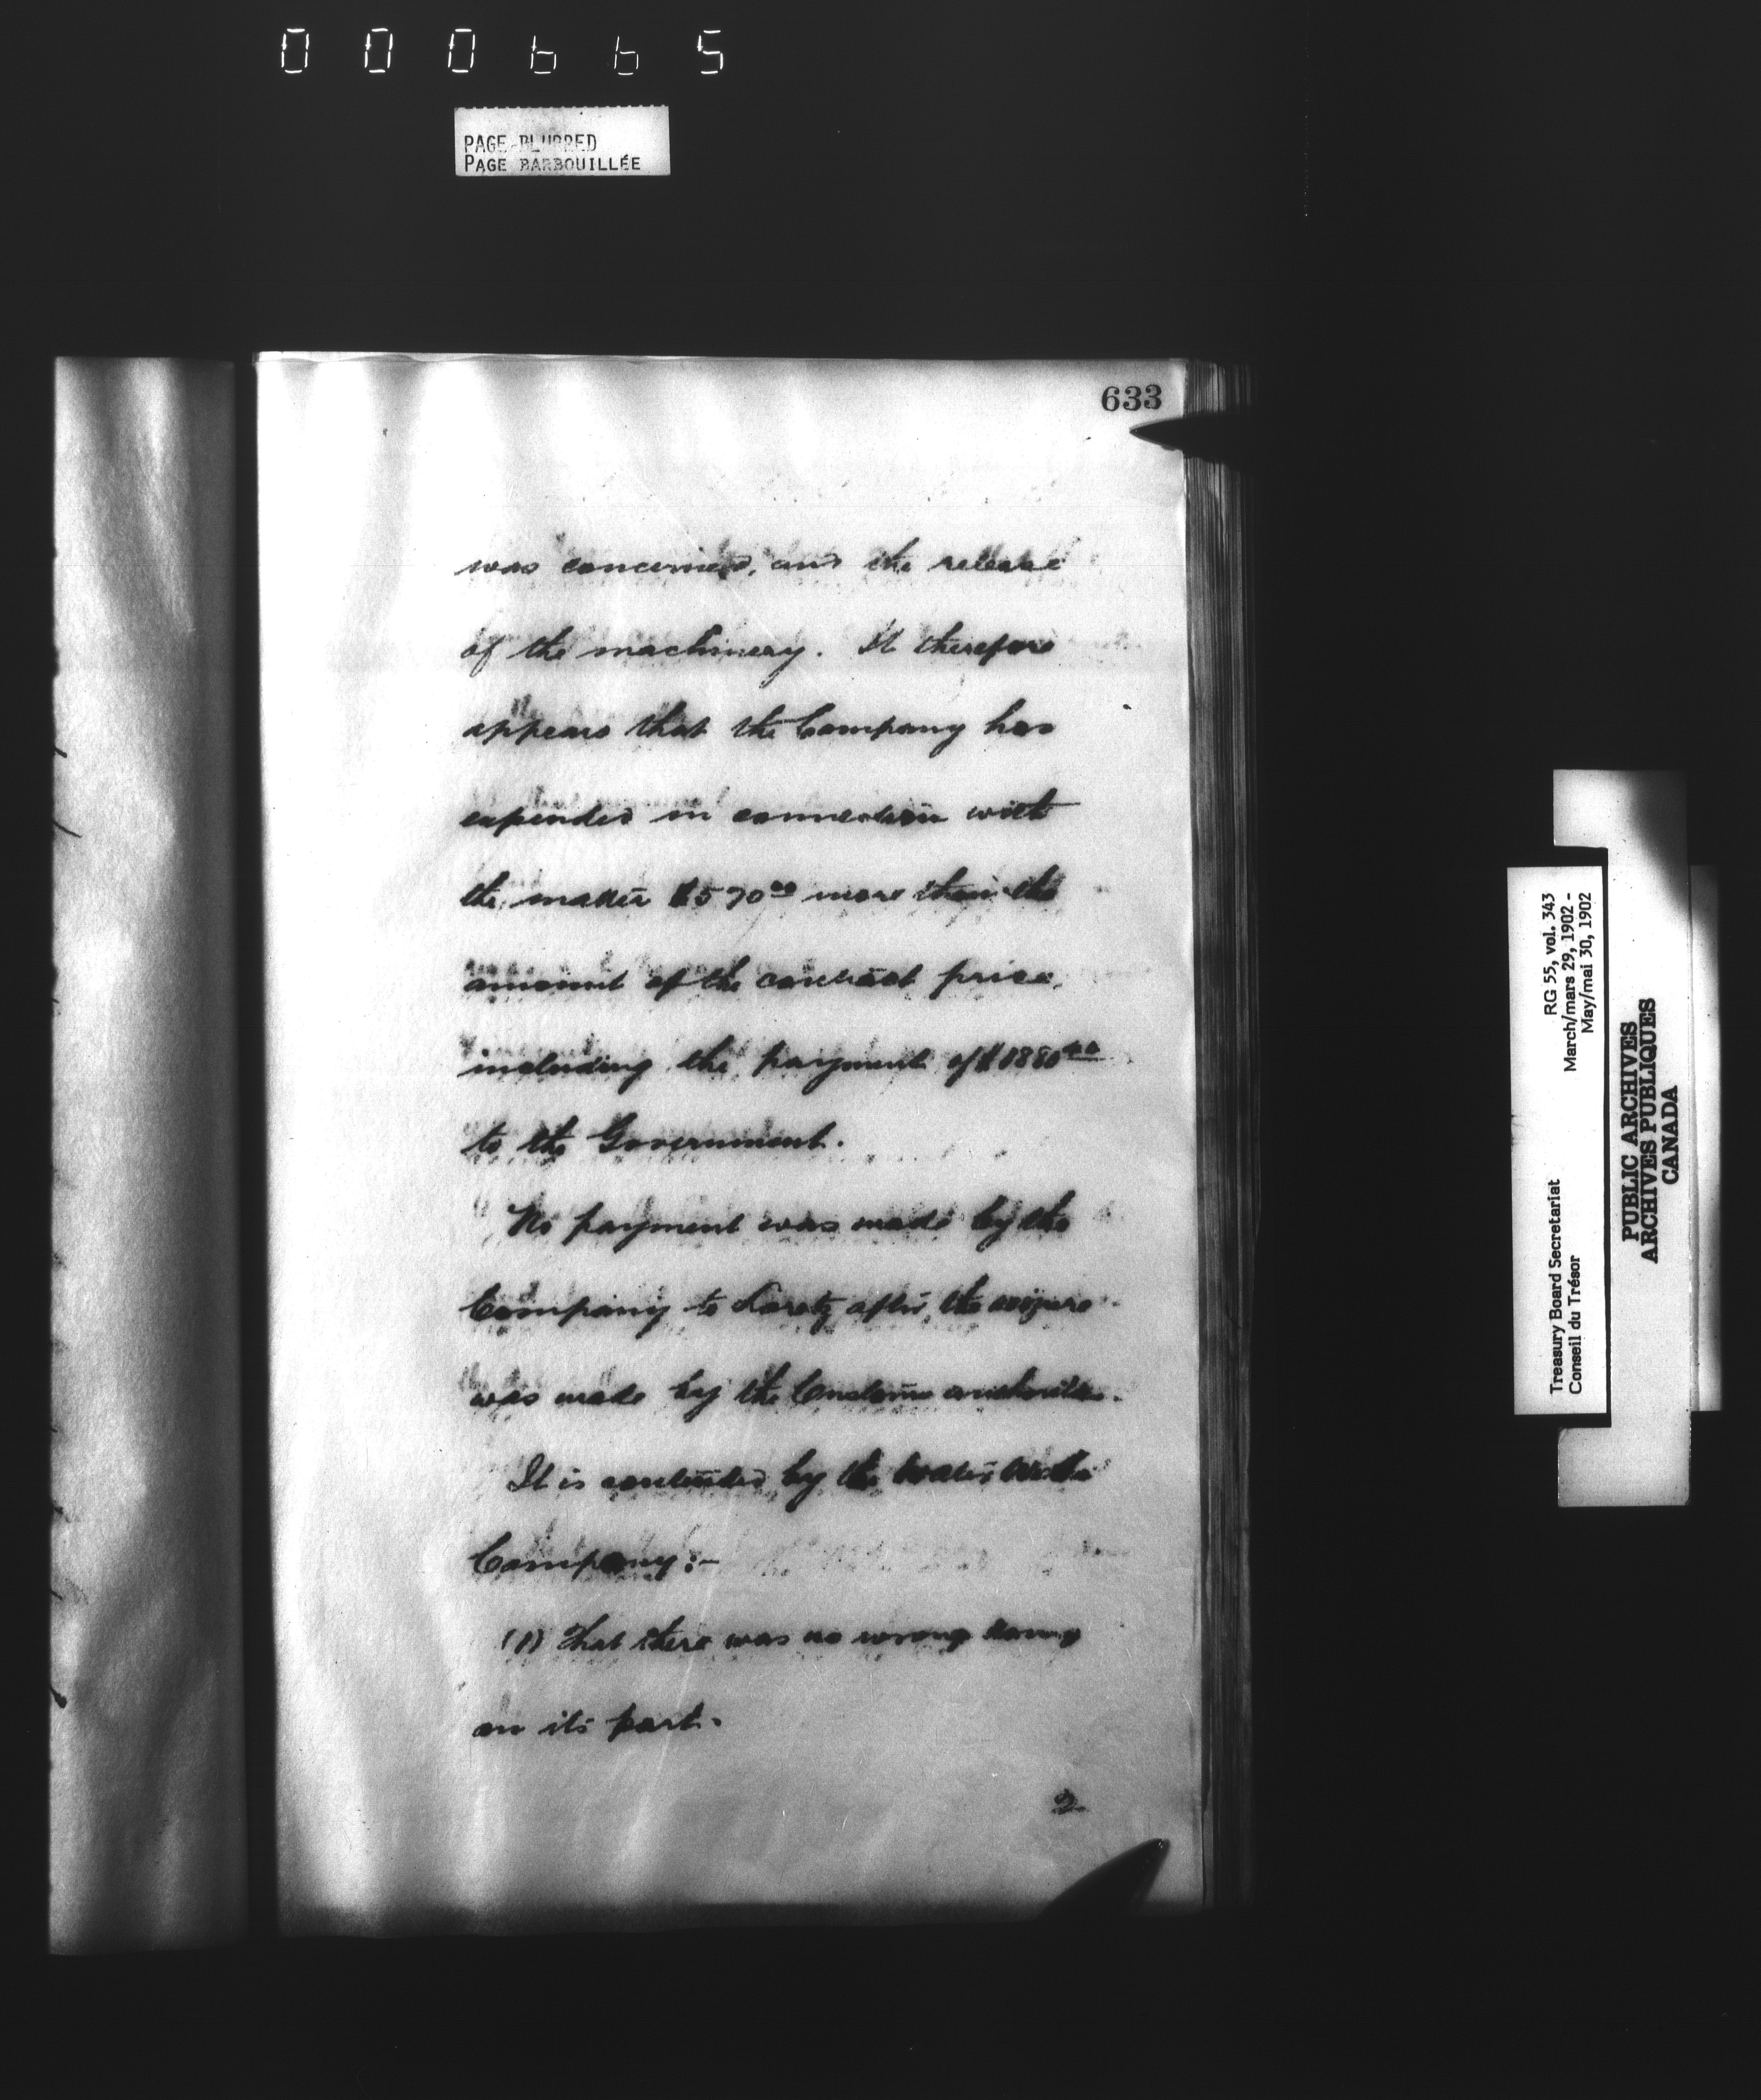 000665
PAGE BLURRED
PAGE BARBOUILLÉE
633
was concerned, and the release
of the machinery. It therefore
appears that the Company has
expended in connection with
the matter $570⁰⁰ more than the
amount of the contract price,
including the payment of $1880⁰⁰
to the Government.
No payment was made by the
Company to after the seizure
was made by the Customs authorities.
It is contended by the Water Works
Company:-
(1) That there was no wrong doing
on its part.
2
RG 55, vol. 343
March/mars 29, 1902 -
May/mai 30, 1902
Treasury Board Secretariat
Conseil du Trésor
PUBLIC ARCHIVES
ARCHIVES PUBLIQUES
CANADA